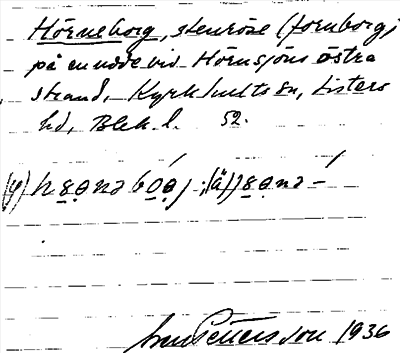 Hörneborg, stenröse (fornborg)
på en udde vid Hörnsjöns östra
strand, Kyrkhults sn, Listers
hd, Blek. l. 52.
Ivar Pettersson 1936